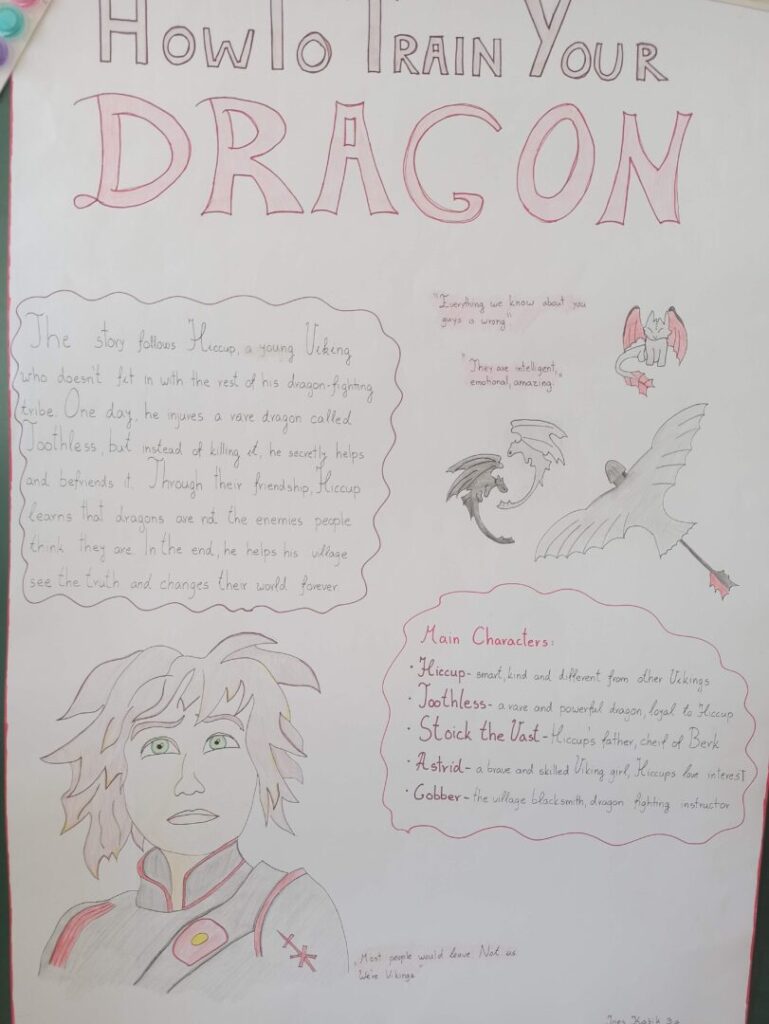 How To Train Your
DRAGON
The story follows Hiccup, a young Viking
who doesn't fit in with the rest of his dragon-fighting
tribe. One day, he injures a rare dragon called
Toothless, but instead of killing it, he secretly helps
and befriends it. Through their friendship, Hiccup
learns that dragons are not the enemies people
think they are. In the end, he helps his village
see the truth and changes their world forever
"Everything we know about you
guys a wrong"
"They are intelligent,
emotional, amazing."
Main Characters:
• Hiccup - smart, kind and different from other Vikings
• Toothless - a rare and powerful dragon, loyal to Hiccup
• Stoick the Vast - Hiccup's father, cheif of Berk
• Astrid - a brave and skilled Viking girl, Hiccups love interest
• Gobber - the village blacksmith, dragon fighting instructor
„Most people would leave. Not us.
We're Vikings"